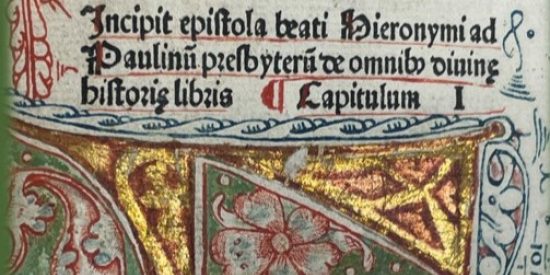 Incipit epiſtola beati Hieronymi ad
Paulinū preſbyterū de omnibꝰ diuinę
hiſtorię libris ¶ Capitulum I